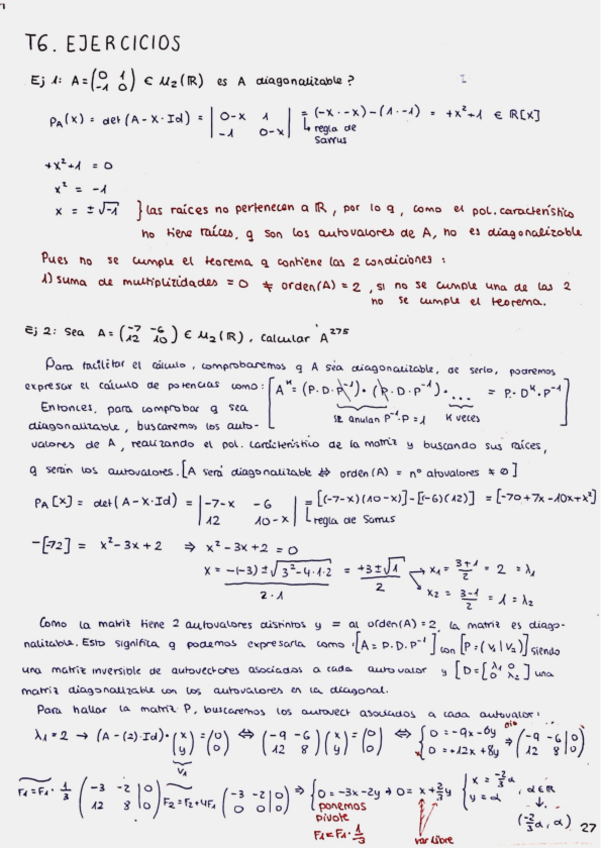 T6. EJERCICIOS
Ej 1: A = (0 1 -1 0) ∈ M₂(ℝ) es A diagonalizable?
P_A(x) = det(A - X·Id) = |0-x 1 -1 0-x| = (-x·-x) - (1·-1) = +x²+1 ∈ ℝ[x]
↳ regla de Sarrus
+x²+1 = 0
x² = -1
x = ±√-1 } las raíces no pertenecen a ℝ, por lo q, como el pol. característico
no tiene raíces, q son los autovalores de A, no es diagonalizable
Pues no se cumple el teorema q contiene las 2 condiciones:
1) suma de multiplizidades = 0 ≠ orden(A) = 2, si no se cumple una de las 2
no se cumple el teorema.
Ej 2: Sea A = (-7 -6 12 10) ∈ M₂(ℝ), calcular A²⁷⁵
Para facilitar el cálculo, comprobaremos q A sea diagonalizable, de serlo, podremos
expresar el cálculo de potencias como: [Aᴷ = (P·D·P⁻¹)·(P·D·P⁻¹)·... = P·Dᴷ·P⁻¹]
se anulan P⁻¹·P=1 K veces
Entonces, para comprobar q sea
diagonalizable, buscaremos los auto-
valores de A, realizando el pol. característico de la matriz y buscando sus raíces,
q serán los autovalores. [A será diagonalizable ⇔ orden(A) = nº atovalores ≠ 0]
P_A[x] = det(A - X·Id) = |-7-x -6 12 10-x| = [(-7-x)(10-x)]-[(-6)(12)] = [-70+7x-10x+x²]
↳ regla de Sarrus
-[-72] = x²-3x+2 ⇒ x²-3x+2 = 0
x = -(-3)±√3²-4·1·2 / 2·1 = +3±√1 / 2 → x₁ = 3+1/2 = 2 = λ₁
x₂ = 3-1/2 = 1 = λ₂
Como la matriz tiene 2 autovalores distintos y = al orden(A)=2, la matriz es diago-
nalizable. Esto significa q podemos expresarla como: [A = P·D·P⁻¹] con [P = (V₁|V₂)] siendo
una matriz inversible de autovectores asociados a cada autovalor y [D = [λ₁ 0 0 λ₂]] una
matriz diagonalizable con los autovalores en la diagonal.
Para hallar la matriz P, buscaremos los autovect asociados a cada autovalor:
λ₁=2 → (A-(2)·Id)·(x y) = (0 0) ⇔ (-9 -6 12 8)(x y) = (0 0) ⇔ {0 = -9x-6y 0 = +12x+8y ⇒ (-9 -6|0 12 8|0)
V₁
F1=F1·1/3 (-3 -2|0 12 8|0) F2=F2+4F1 (-3 -2|0 0 0|0) ⇒ {0 = -3x-2y → 0 = x+2/3y {x = -2/3α y = α, α∈ℝ
ponemos
pivote
F1=F1·1/3
var libre
(-2/3α, α)
27